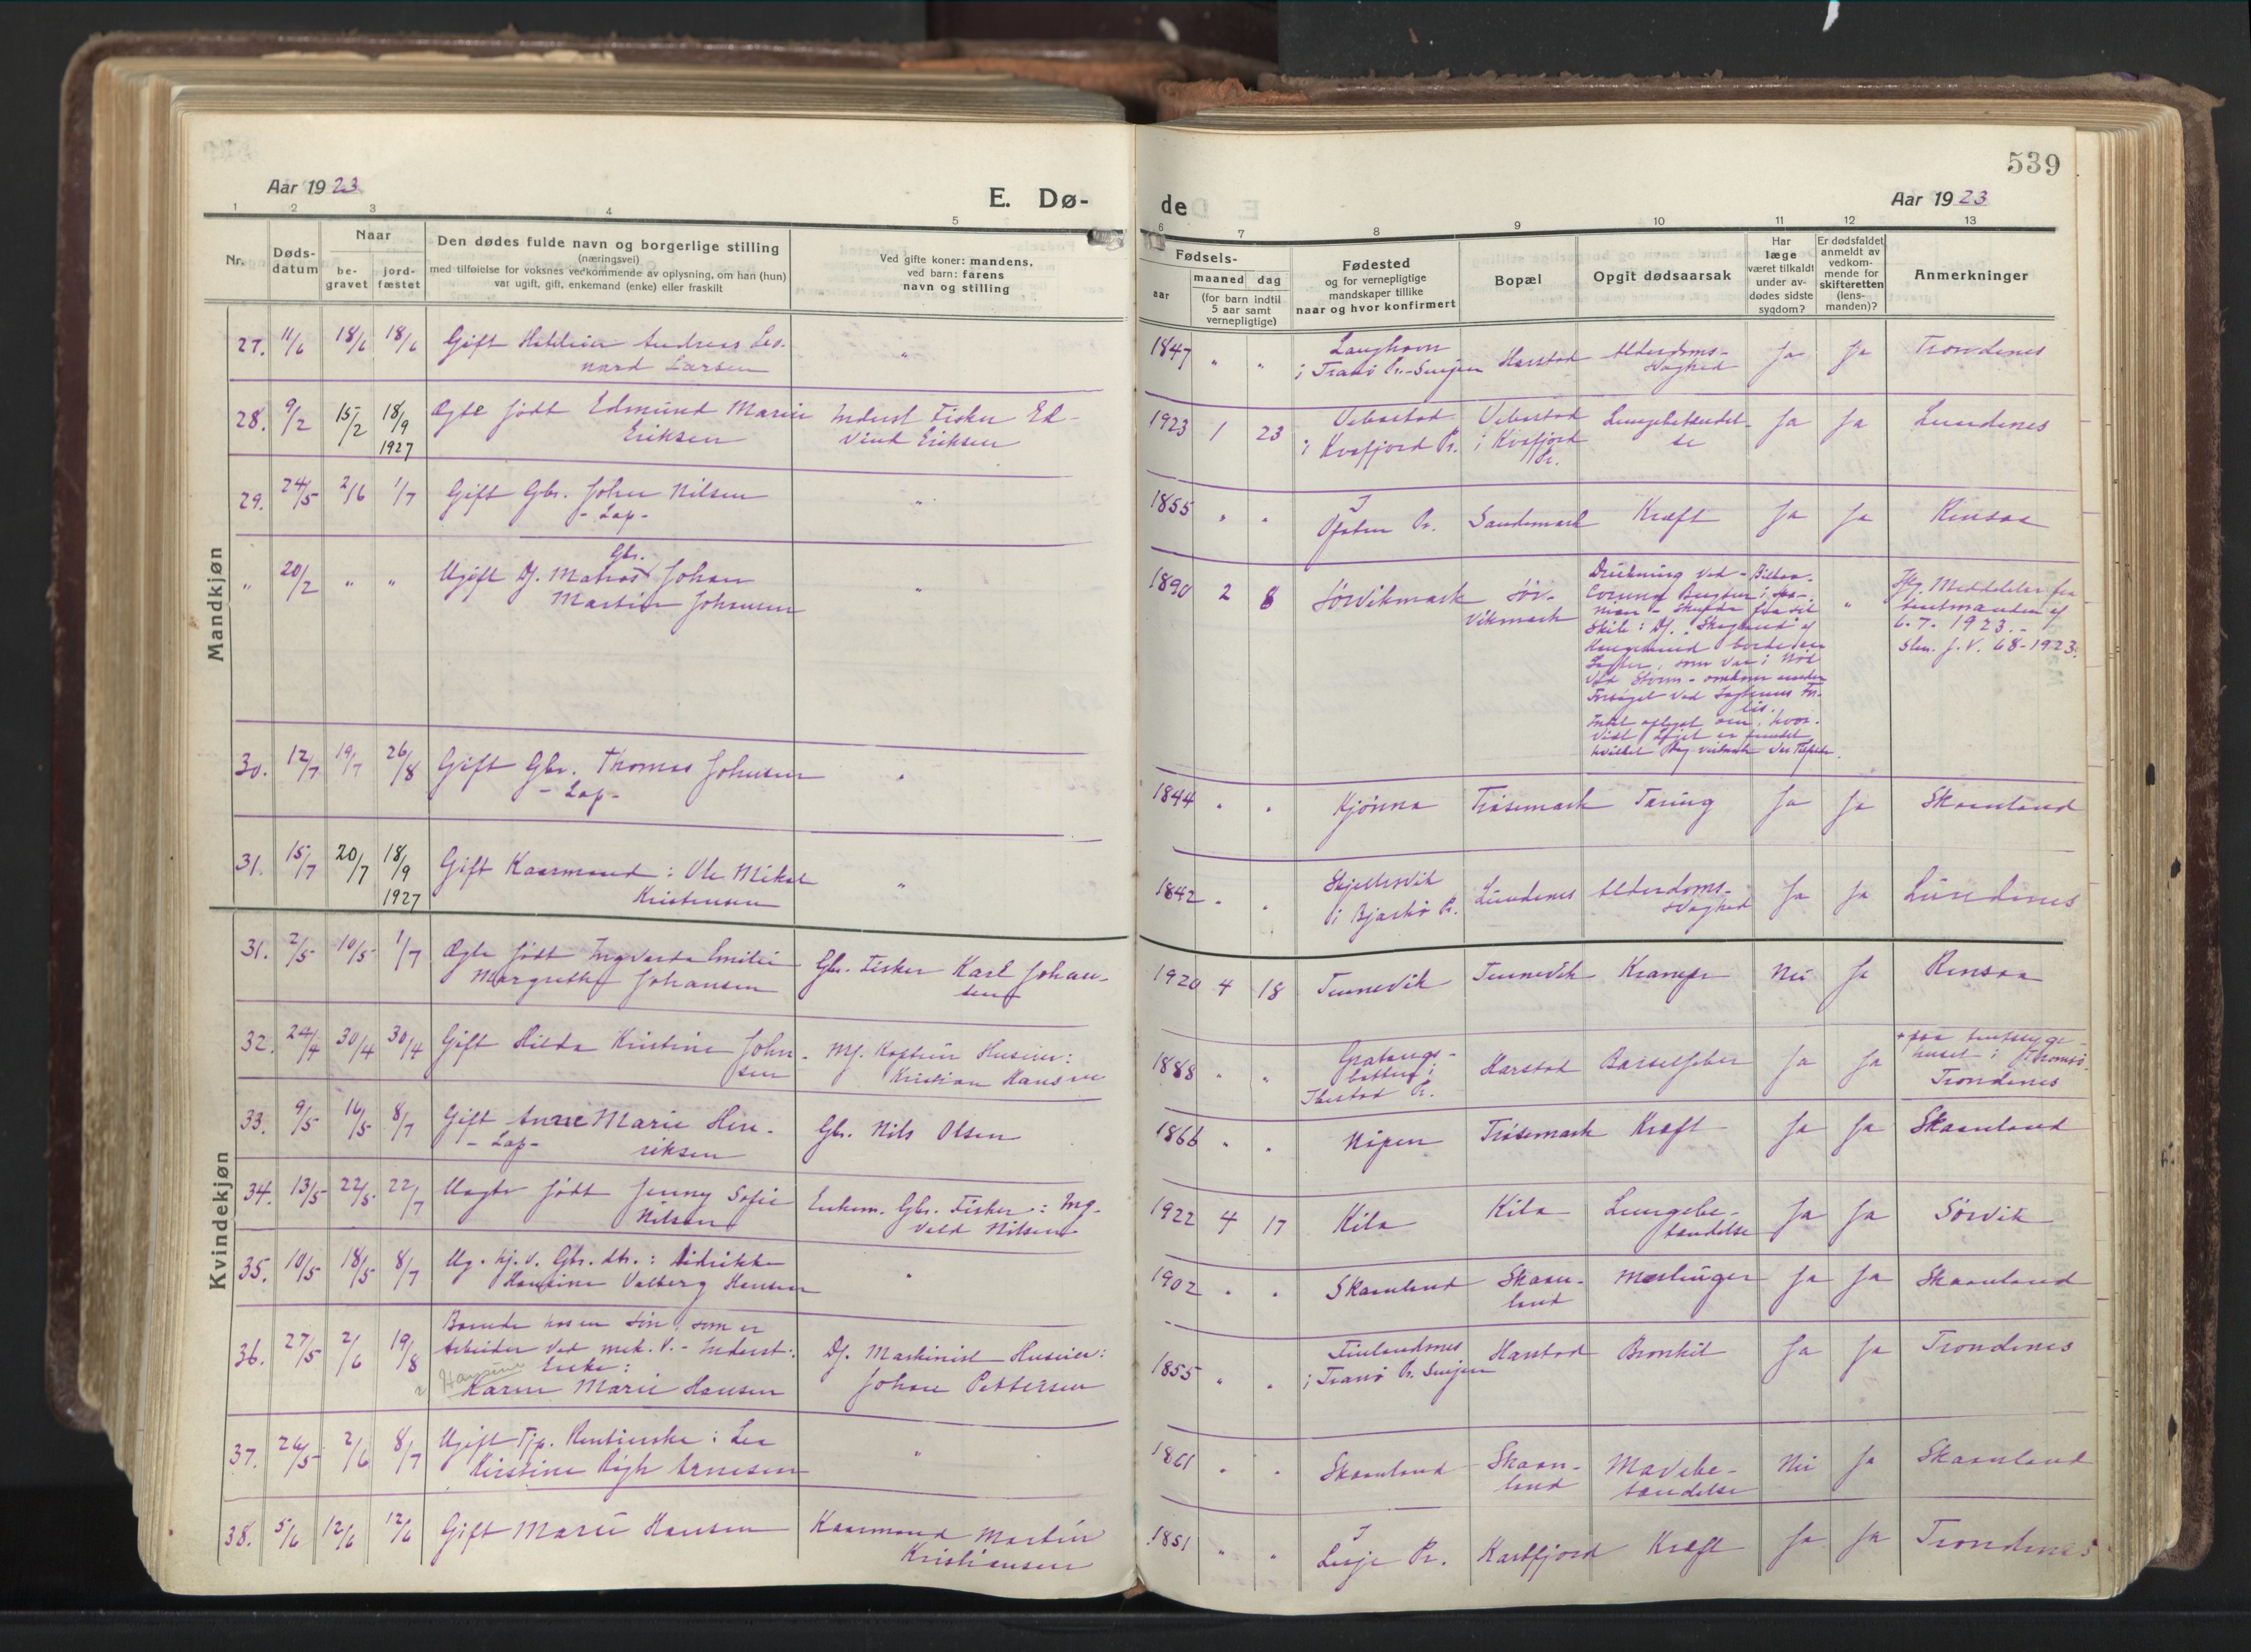 539
Aar 1923
E. Dø-
de
Aar 1923
1 2 3 4 5
6 7 8 9 10 11 12 13
Nr.
Døds-
datum
Naar
be-
gravet
jord-
fæstet
Den dødes fulde navn og borgerlige stilling
(næringsvei)
med tilføielse for voksnes vedkommende av oplysning, om han (hun)
var ugift, gift, enkemand (enke) eller fraskilt
Ved gifte koner: mandens,
ved barn: farens
navn og stilling
Fødsels-
aar
maaned dag
(for barn indtil
5 aar samt
vernepligtige)
Fødested
og for vernepligtige
mandskaper tillike
naar og hvor konfirmert
Bopæl
Opgit dødsaarsak
Har
læge
været tilkaldt
under av-
dødes sidste
sygdom?
Er dødsfaldet
anmeldt av
vedkom-
mende for
skifteretten
(lens-
manden)?
Anmerkninger
Mandkjøn
27. 11/6 18/6 18/6 Gift Andreas Leo-
nard Larsen "
1847 " "
i Tranø Pr. Senjen Harstad Alderdoms-
svaghed Ja Ja Trondenes
28. 9/2 15/2 18/9 1927 Ægte født Edmund Marie
Eriksen
Inderst Fisker Ed-
vind Eriksen
1923 1 23 Vebostad
i Kvæfjord Pr.
Vebostad
i Kvæfjord
Pr.
Lungebetændel-
se Ja Ja Lundenes
29. 24/5 2/6 1/7 Gift Gbr. Johan Nilsen
- Lap - "
1855 " " I
Ofoten Pr. Sandemark Kræft Ja Ja Rensaa
" 20/2 " " Ugift Df. Matros Gbr. Johan
Martin Johansen "
1890 2 8 Sørvikmark Sør-
vikmark
Drukning ved - Bilbao-
Skib: Df. "Skogland" af
Haugesund
som var i Nød
ved Storm - omkom under
Forsøget ved
lis.
Intet oplyst om, hvor-
vidt Liget er fundet
"
Flg. Meddelelse fra
lensmanden af
6.7. 1923. -
Skr. J.V. 68-1923.
30. 12/7 19/7 26/8 Gift Gbr. Thomas Johnsen
- Lap - "
1844 " " Kjønna Trøsemark Tæring Ja Ja Skaanland
31. 15/7 20/7 18/9 1927 Gift Kaarmand: Ole Mikal
Kristensen "
1842 " " Skjellesvik
i Bjarkø Pr. Lundenes Alderdoms-
svaghed Ja Ja Lundenes
Kvindekjøn
31. 2/5 10/5 1/7 Ægte født Ingvarda Emilie
Margrethe Johansen
Gbr. Fisker Karl Johan-
sen
1920 4 18 Tennevik Tennevik Krampe Nei Ja Rensaa
32. 24/4 30/4 30/4 Gift Hilda Kristine John-
sen
Mf. Kaptein Huseier:
Kristian Hansen
1888 " " Gratangs-
botten i
Ibestad Pr. Harstad Barselfeber Ja Ja
+ paa
huset i Tromsø.
Trondenes
33. 9/5 16/5 8/7 Gift Anne Marie Hen-
- Lap - riksen
Gbr. Nils Olsen
1866 " " Nipen Trøsemark Kræft Ja Ja Skaanland
34. 13/5 22/5 22/7 Uægte født Jenny Sofie
Nilsen
Enkem. Gbr. Fisker: Ing-
vald Nilsen
1922 4 17 Kila Kila Lungebe-
tændelse Ja Ja Sørvik
35. 10/5 18/5 8/7 Ug. hj. v. Gbr. dtr.: Didrikke
Hansine Valborg Hansen "
1902 " " Skaanland Skaan-
land Mæslinger Ja Ja Skaanland
36. 27/5 2/6 19/8 Boende hos en Søn, som er
Arbeider ved mek. V. - Inderst:
Hansine Enke:
Karen Marie Hansen
Df. Maskinist Huseier:
Johan Pettersen
1855 " " Finlandsnes
i Tranø Pr. Senjen Harstad Bronkit Ja Ja Trondenes
37. 26/5 2/6 8/7 Ugift Tjp. Rentierske: Lea
Kristine Røgh Arnesen "
1861 " " Skaanland Skaan-
land Mavebe-
tændelse Nei Ja Skaanland
38. 5/6 12/6 12/6 Gift Marie Hansen
Kaarmand Martin
Kristiansen
1851 " " I
Lesje Pr. Kasfjord Kræft Ja Ja Trondenes